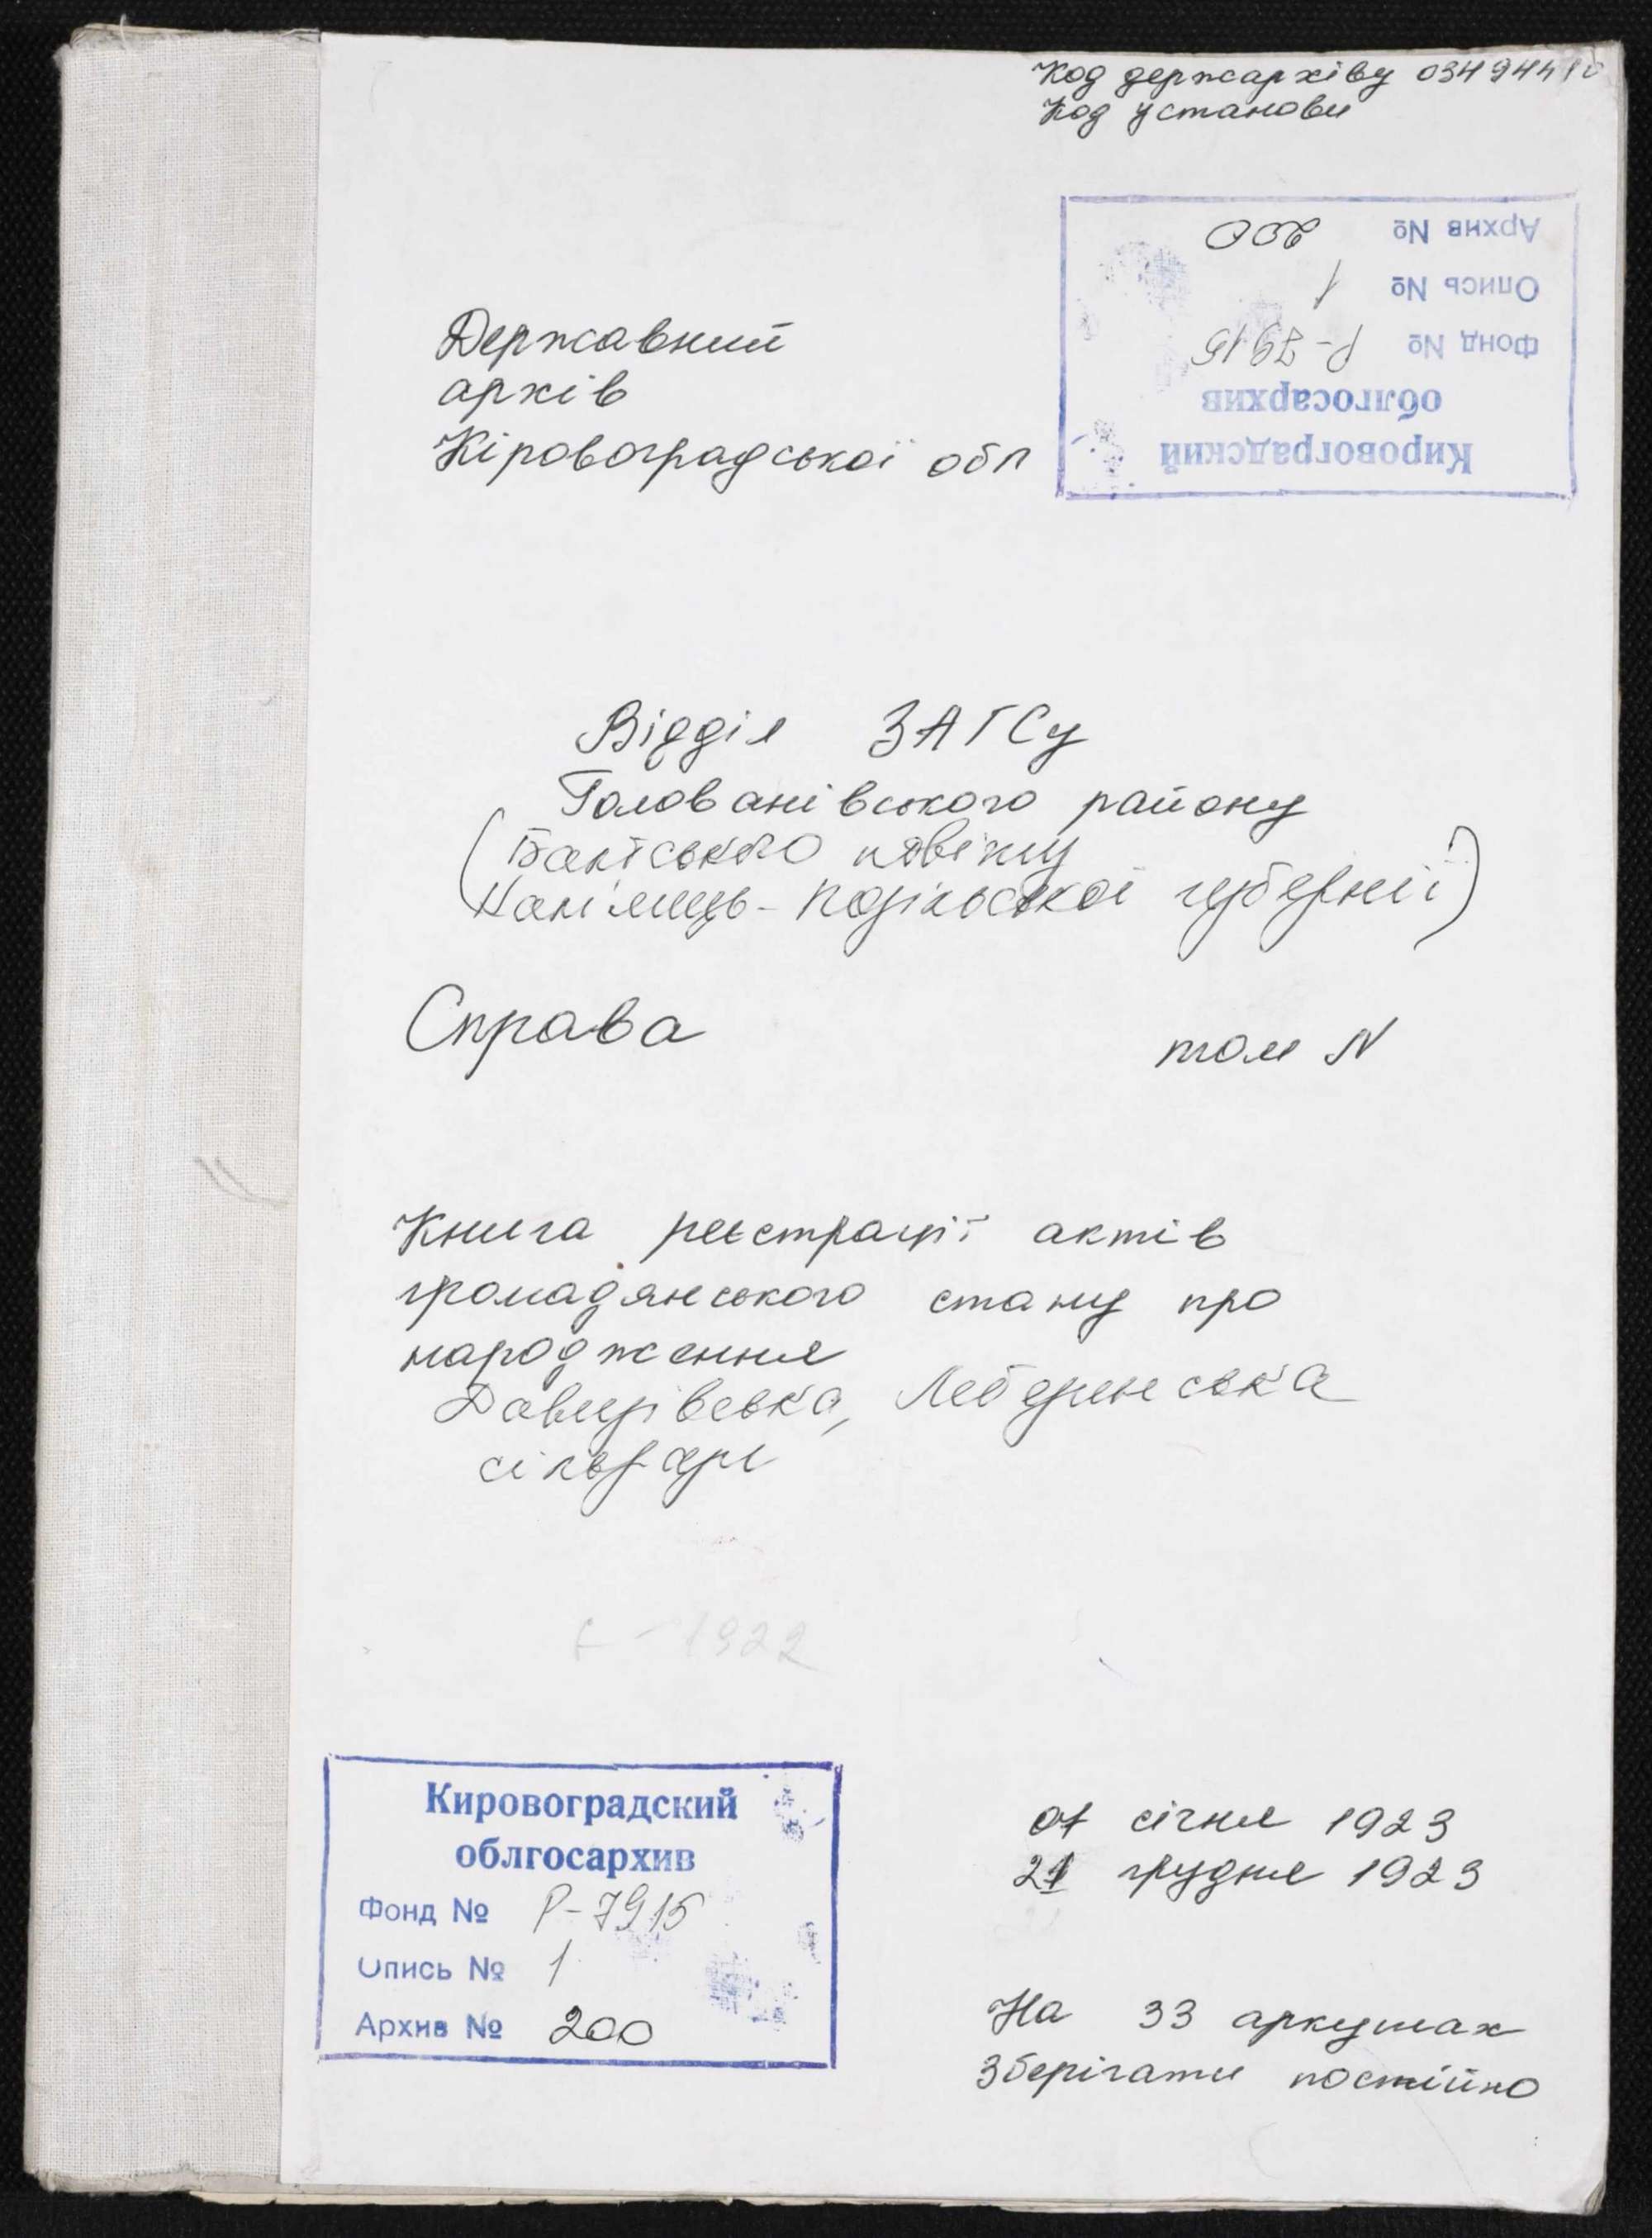 Код держархіву 03494410
Код установи
Архив № 200
Опись № 1
Фонд № Р-7915
облгосархив
Кировоградский
Державний
архів
Кіровоградської обл
Відділ ЗАГСу
Голованівського району
(Балтського повіту
Кам'янець-Подільської губернії)
Справа том N
Книга реєстрації актів
громадянського стану про
народження
Давидівська, Лебединська
сільради
1922
Кировоградский
облгосархив
Фонд № Р-7915
Опись № 1
Архив № 200
01 січня 1923
21 грудня 1923
На 33 аркушах
Зберігати постійно